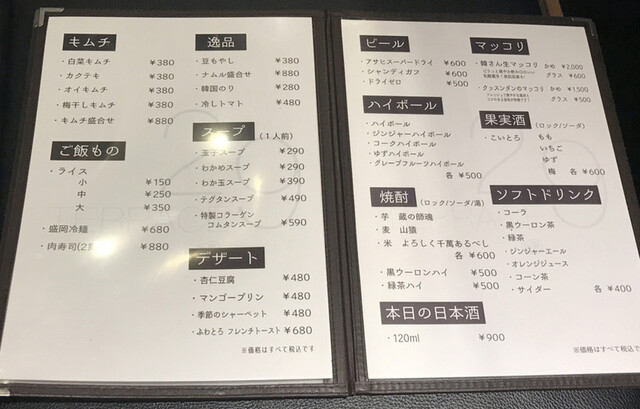 キムチ
・白菜キムチ ¥380
・カクテキ ¥380
・オイキムチ ¥380
・梅干しキムチ ¥380
・キムチ盛合せ ¥880
ご飯もの
・ライス
小 ¥150
中 ¥250
大 ¥350
・盛岡冷麺 ¥680
・肉寿司(2貫) ¥880
逸品
・豆もやし ¥380
・ナムル盛合せ ¥880
・韓国のり ¥280
・冷しトマト ¥480
スープ (1人前)
・玉子スープ ¥290
・わかめスープ ¥290
・わか玉スープ ¥390
・テグタンスープ ¥490
・特製コラーゲン
コムタンスープ ¥590
デザート
・杏仁豆腐 ¥480
・マンゴープリン ¥480
・季節のシャーベット ¥480
・ふわとろ フレンチトースト ¥680
※価格はすべて税込です
ビール
・アサヒスーパードライ ¥600
・シャンディガフ ¥600
・ドライゼロ ¥500
ハイボール
・ハイボール
・ジンジャーハイボール
・コークハイボール
・ゆずハイボール
・グレープフルーツハイボール
各 ¥500
焼酎 (ロック/ソーダ/湯)
・芋 蔵の師魂
・麦 山猿
・米 よろしく千萬あるべし
各 ¥600
・黒ウーロンハイ ¥500
・緑茶ハイ ¥500
本日の日本酒
・120ml ¥900
マッコリ
・韓さん生マッコリ かめ ¥2,000
グラス ¥600
・クッスンダンのマッコリ かめ ¥1,500
グラス ¥500
果実酒 (ロック/ソーダ)
・こいとろ もも
いちご
ゆず
梅 各 ¥600
ソフトドリンク
・コーラ
・黒ウーロン茶
・緑茶
・ジンジャーエール
・オレンジジュース
・コーン茶
・サイダー 各 ¥400
※価格はすべて税込です